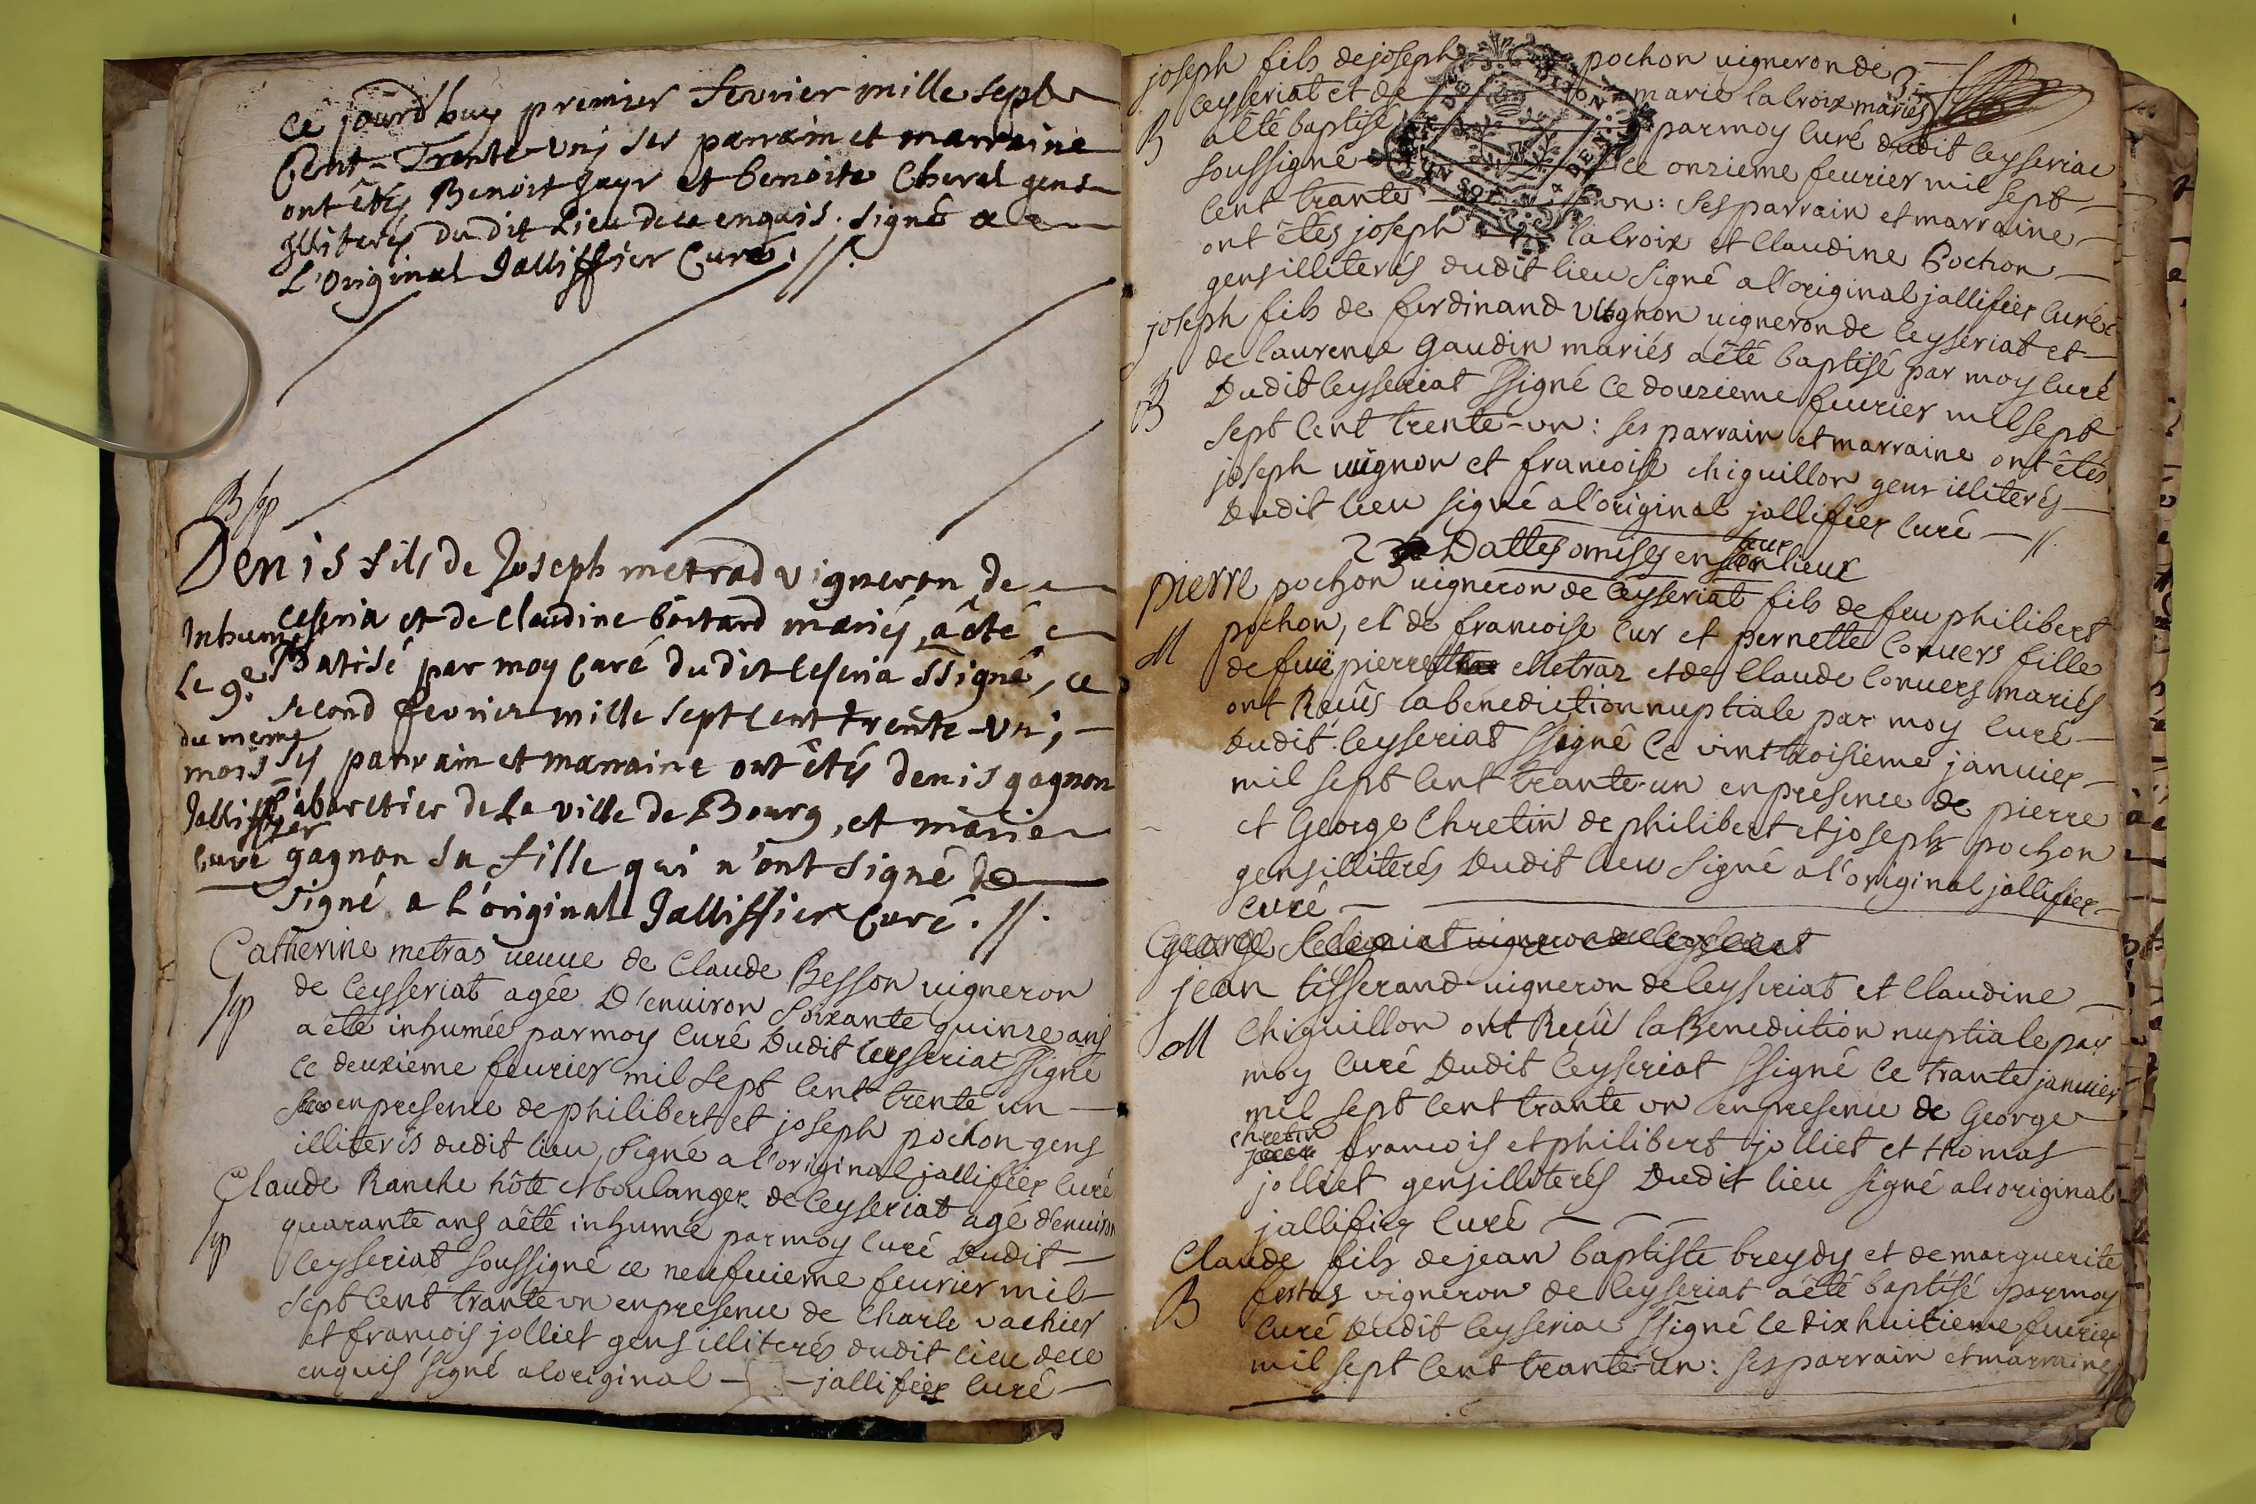 ce jourd'huy premier fevrier mille sept
Cent-Trente-uni ses parrain et marraine
ont êtés Benoist Jayr et benoite Cheral gens
Illiterés du dit Lieu de ce enquis. signé a
L'Original Jallifier Curé. //.
B Sp
Denis fils de Joseph metrad vigneron de
Ceseria et de Claudine bostard mariés, a êté
Batisé par moy Curé du dit Ceseria ssigné, ce
second fevrier mille sept Cent trente-uni,
ses parrain et marraine ont êtés denis gagnon
Cabaretier de La ville de Bourg, et marie
gagnon sa fille qui n'ont signé
signé a L'original Jallissier Curé. //.
Inhumé
Le 9e
du meme
mois
Jallissier
Curé
Catherine metras veuve de Claude Besson vigneron
Sp
de Ceyseriat agée D'environ soixante quinze ans
a êté inhumée par moy Curé Dudit Ceyseriat ssigné
Ce deuxieme fevrier mil sept Cent trente un
en presence de philibert et joseph pochon gens
illiterés dudit lieu, signé a l'original jallifier Curé
Claude Ranche hôte et boulanger de Ceyseriat agé d'environ
Sp
quarante ans aêté inhumé par moy Curé Dudit
Ceyseriat soussigné ce neufvieme fevrier mil
sept Cent trante un en presence de Charle vachier
et francois jolliet gens illiterés dudit lieu de ce
enquis signé a loriginal — jallifier Curé
joseph fils de joseph pochon vigneron de 3
Ceyseriat et de marie lacroix mariés
B
aêté baptisé par moy Curé dudit Ceyseriac
soussigné ce onzieme fevrier mil sept
Cent trante un: ses parrain et marraine
ont êtés joseph lacroix et Claudine Pochon
gens illiterés dudit lieu signé a l'original jallifier Curé
joseph fils de ferdinand vugnon vigneron de Ceyseriat et
de laurence gaudin mariés aêté baptisé par moy Curé
B
Dudit Ceyseriat ssigné Ce douzieme fevrier mil sept
sept Cent trente-un: ses parrain et marraine ont êtés
joseph vugnon et francoise chiguillon gens illiterés
Dudit lieu signé a l'original jallifier Curé — //.
2 Dattes omises en leur lieux
pierre pochon vigneron de Ceyseriat fils de feu philibert
M
pochon, et de francoise Cur et pernette Convers fille
de fuë pierre Metraz et de Claude Convers mariés
ont Reçûs la benediction nuptiale par moy Curé
Dudit Ceyseriat ssigné Ce vint troisieme janvier
mil sept Cent trante-un en presence de pierre
et George Chretin de philibert et joseph pochon
gens illiterés Dudit lieu signé a l'original jallifier
Curé
jean tisserand vigneron de Ceyseriat et Claudine
M
Chiguillon ont Reçû la Benediction nuptiale par
moy Curé Dudit Ceyseriat ssigné Ce trante janvier
mil sept Cent trante un en presence de George
chretin
francois et philibert jolliet et thomas
jolliet gens illiterés Dudit lieu signé al'original
jallifier Curé
Claude fils de jean baptiste breydy et de marguerite
B
vigneron de Ceyseriat aêté baptisé par moy
Curé Dudit Ceyseriac ssigné Ce dix huitieme fevrier
mil sept Cent trante-un: ses parrain et marraine